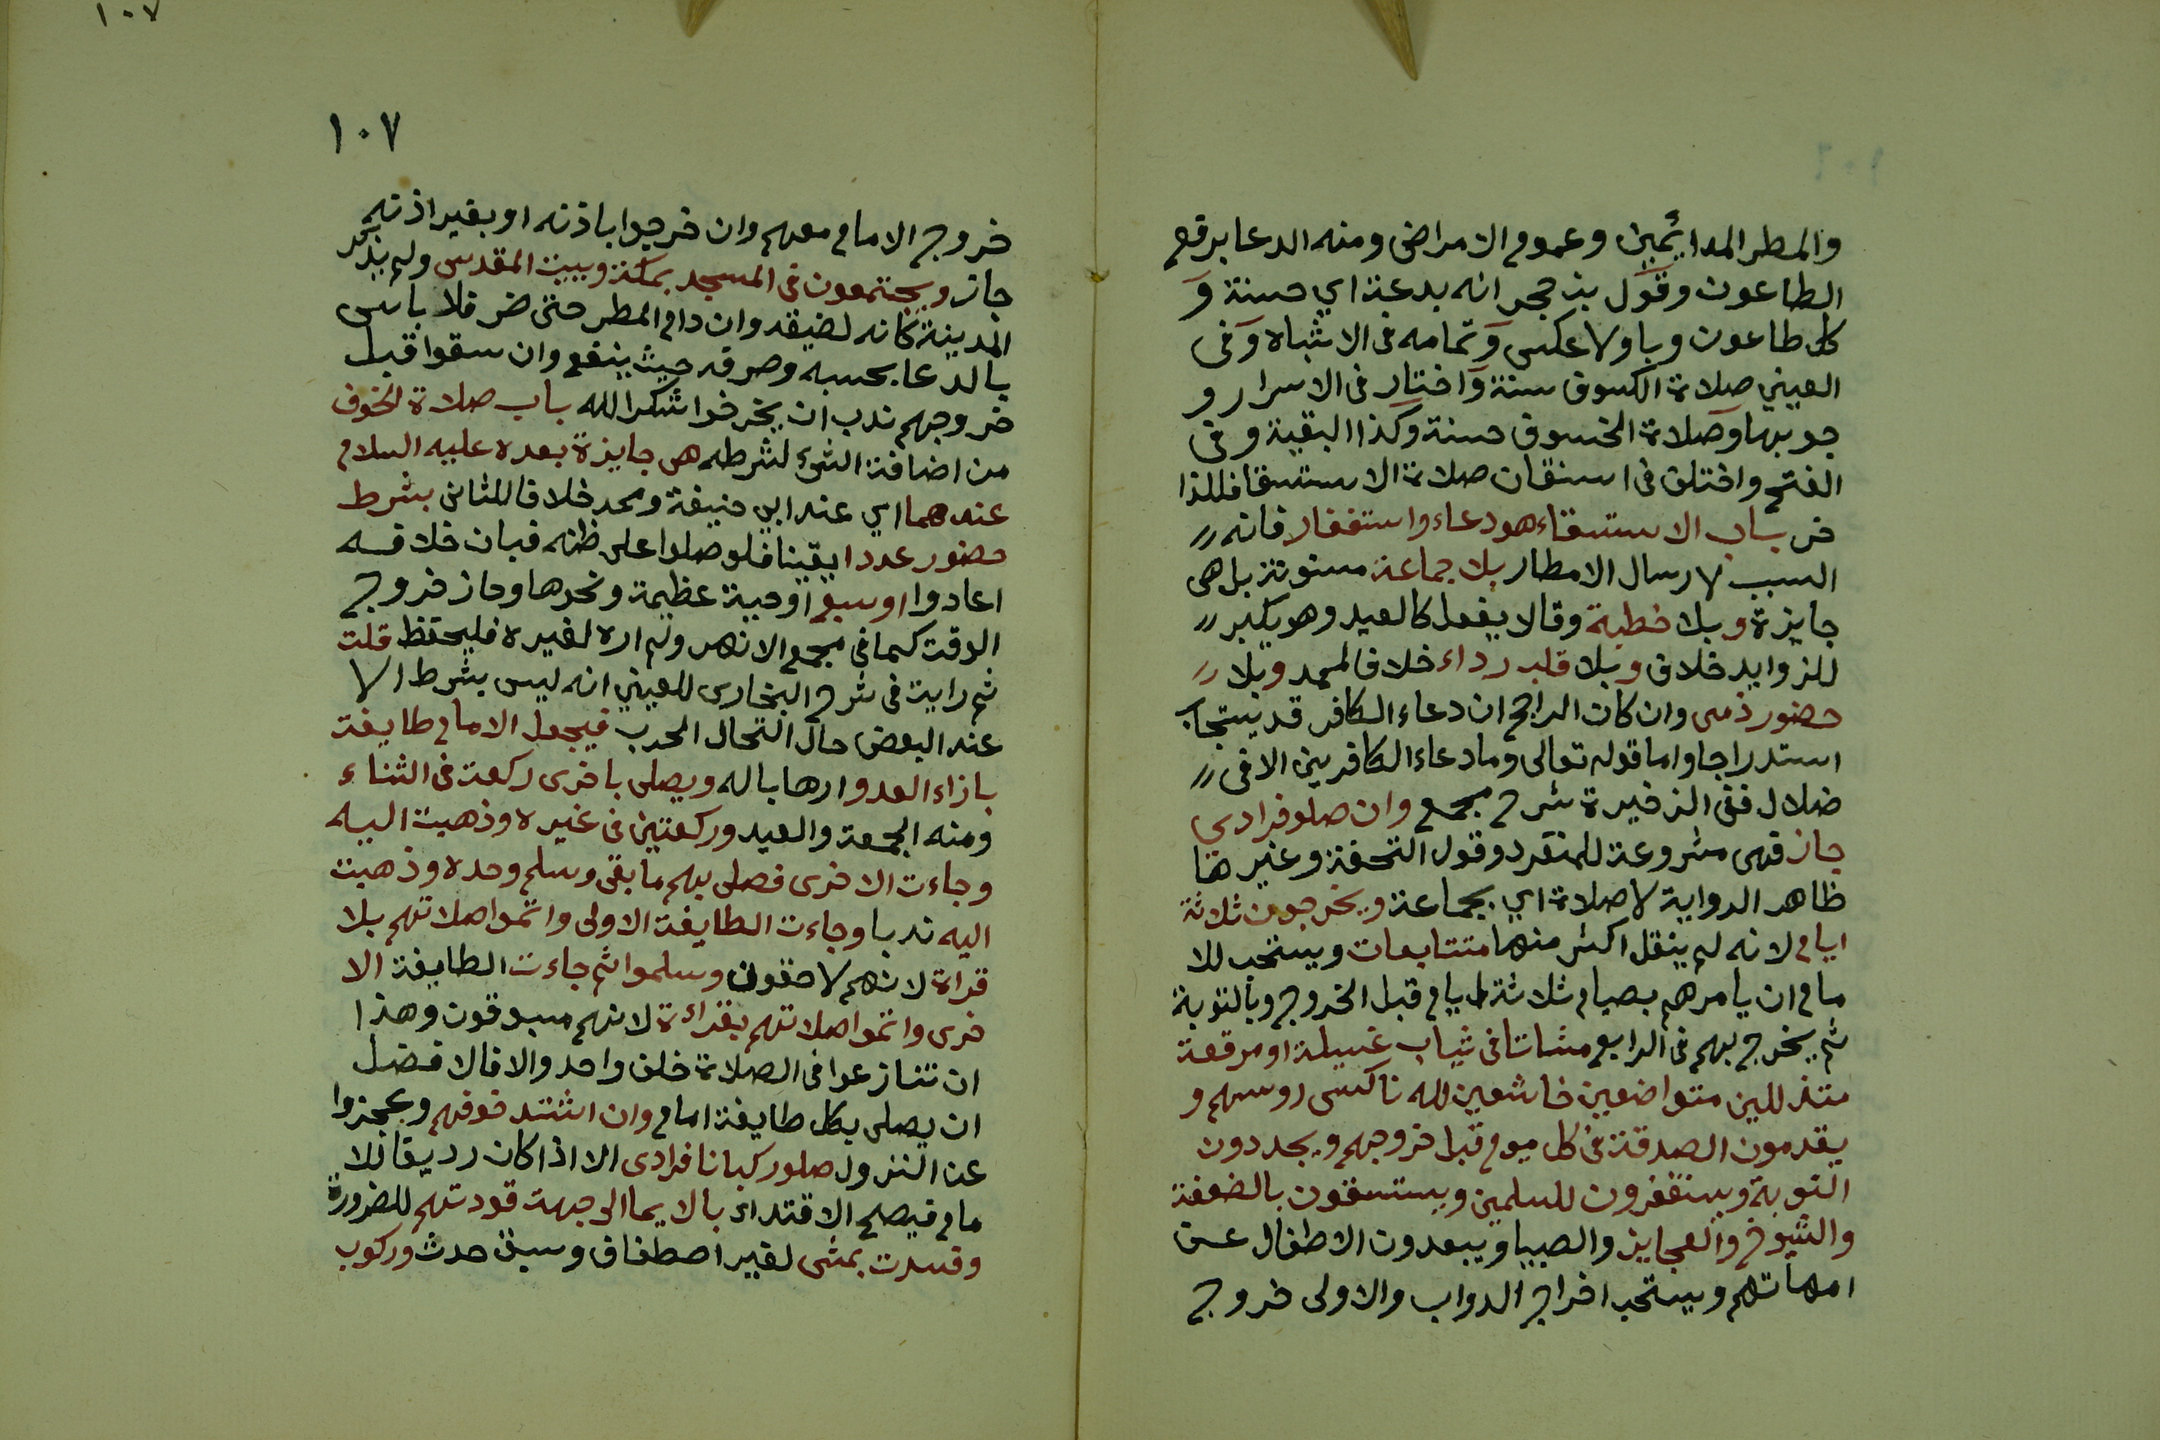 والمطر الدائمين وعموم الامراض ومنه الدعا برفع
الطاعون وقول بن حجر انه بدعة اي حسنة و
كل طاعون وبا ولا عكس وتمامه فى الاشباه وفى
العيني صلاة الكسوف سنة واختار فى الاسرار و
جوبها وصلاة الخسوف حسنة وكذا البقية وفى
الفتح واختلف فى استنان صلاة الاستسقا فلذا
خر باب الاستسقاء هو دعاء واستغفار فانه
السبب لارسال الامطار بلا جماعة مسنونة بل هى
جايزة وبلا خطبة وقالا يفعل كالعيد وهو يكبر
للزوايد خلاف وبلا قلب رداء خلافا لمحمد وبلا
حضور ذمى وان كان الراجح ان دعاء الكافر قد يستجاب
استدراجا واما قوله تعالى وما دعاء الكافرين الا فى
ضلال ففى الاخرة شرح مجمع وان صلو فرادي
جاز فهى مشروعة للمنفرد وقول التحفة وغيرها
ظاهر الرواية لا صلاة اي بجماعة ويخرجون ثلاثة
ايام لانه لم ينقل اكثر منها متتابعات ويستحب للا
مام ان يامرهم بصيام ثلاثة ايام قبل الخروج وبالتوبة
ثم يخرج بهم فى الرابع مشاتا فى ثياب غسيلة او مرقعة
متذللين متواضعين خاشعين لله ناكسى روسهم و
يقدمون الصدقة فى كل يوم قبل خروجهم ويجددون
التوبة ويستغفرون للمسلمين ويستسقون بالضعفة
والشيوخ والعجايز والصبيا ويبعدون الاطفال عن
امهاتهم ويستحب اخراج الدواب والاولى خروج
١٠٧
١٠٧
خروج الامام معهم وان خرجوا باذنه او بغير اذنه
جاز ويجتمعون فى المسجد بمكة وبيت المقدس ولم يذكر
المدينة كانه لضيقه وان دام المطر حتى ضر فلا باس
بالدعا بحبسه وصرفه حيث ينفع وان سقوا قبل
خروجهم ندب ان يخرجوا شكرا لله باب صلاة الخوف
من اضافة الشىء لشرطه هى جايزة بعده عليه السلام
عندهما اي عند ابي حنيفة ومحمد خلافا للثانى بشرط
حضور عدد ا يقينا فلو صلوا على ظنه فبان خلافه
اعادوا او سبع او حية عظيمة ونحوها وحاز خروج
الوقت كما فى مجمع الانهر ولم اره لغيره فليحفظ قلت
ثم رايت فى شرح البخارى للعيني انه ليس بشرط الا
عند البعض حال التحال الحرب فيجعل الامام طايفة
بازاء العدو ارهابا له ويصلى باخرى ركعة فى الثناء
ومنه الجمعة والعيد وركعتين فى غيره وذهبت اليه
وجاءت الاخرى فصلى بهم ما بقى وسلم وحده وذهبت
اليه ندبا وجاءت الطايفة الاولى واتموا صلاتهم بلا
قراة لانهم لاحقون وسلموا ثم جاءت الطايفة الا
خرى واتموا صلاتهم بقراءة لانهم مسبوقون وهذا
ان تنازعوا فى الصلاة خلف واحد والا فالافضل
ان يصلى بكل طايفة امام وان اشتد خوفهم وعجزوا
عن النزول صلو ركبانا فرادى الا اذا كان رديفا للا
مام فيصح الاقتداء بالايما الى جهة قودتهم للضرورة
وفسدت بمشى لغير اصطفاف وسبق حدث وركوب